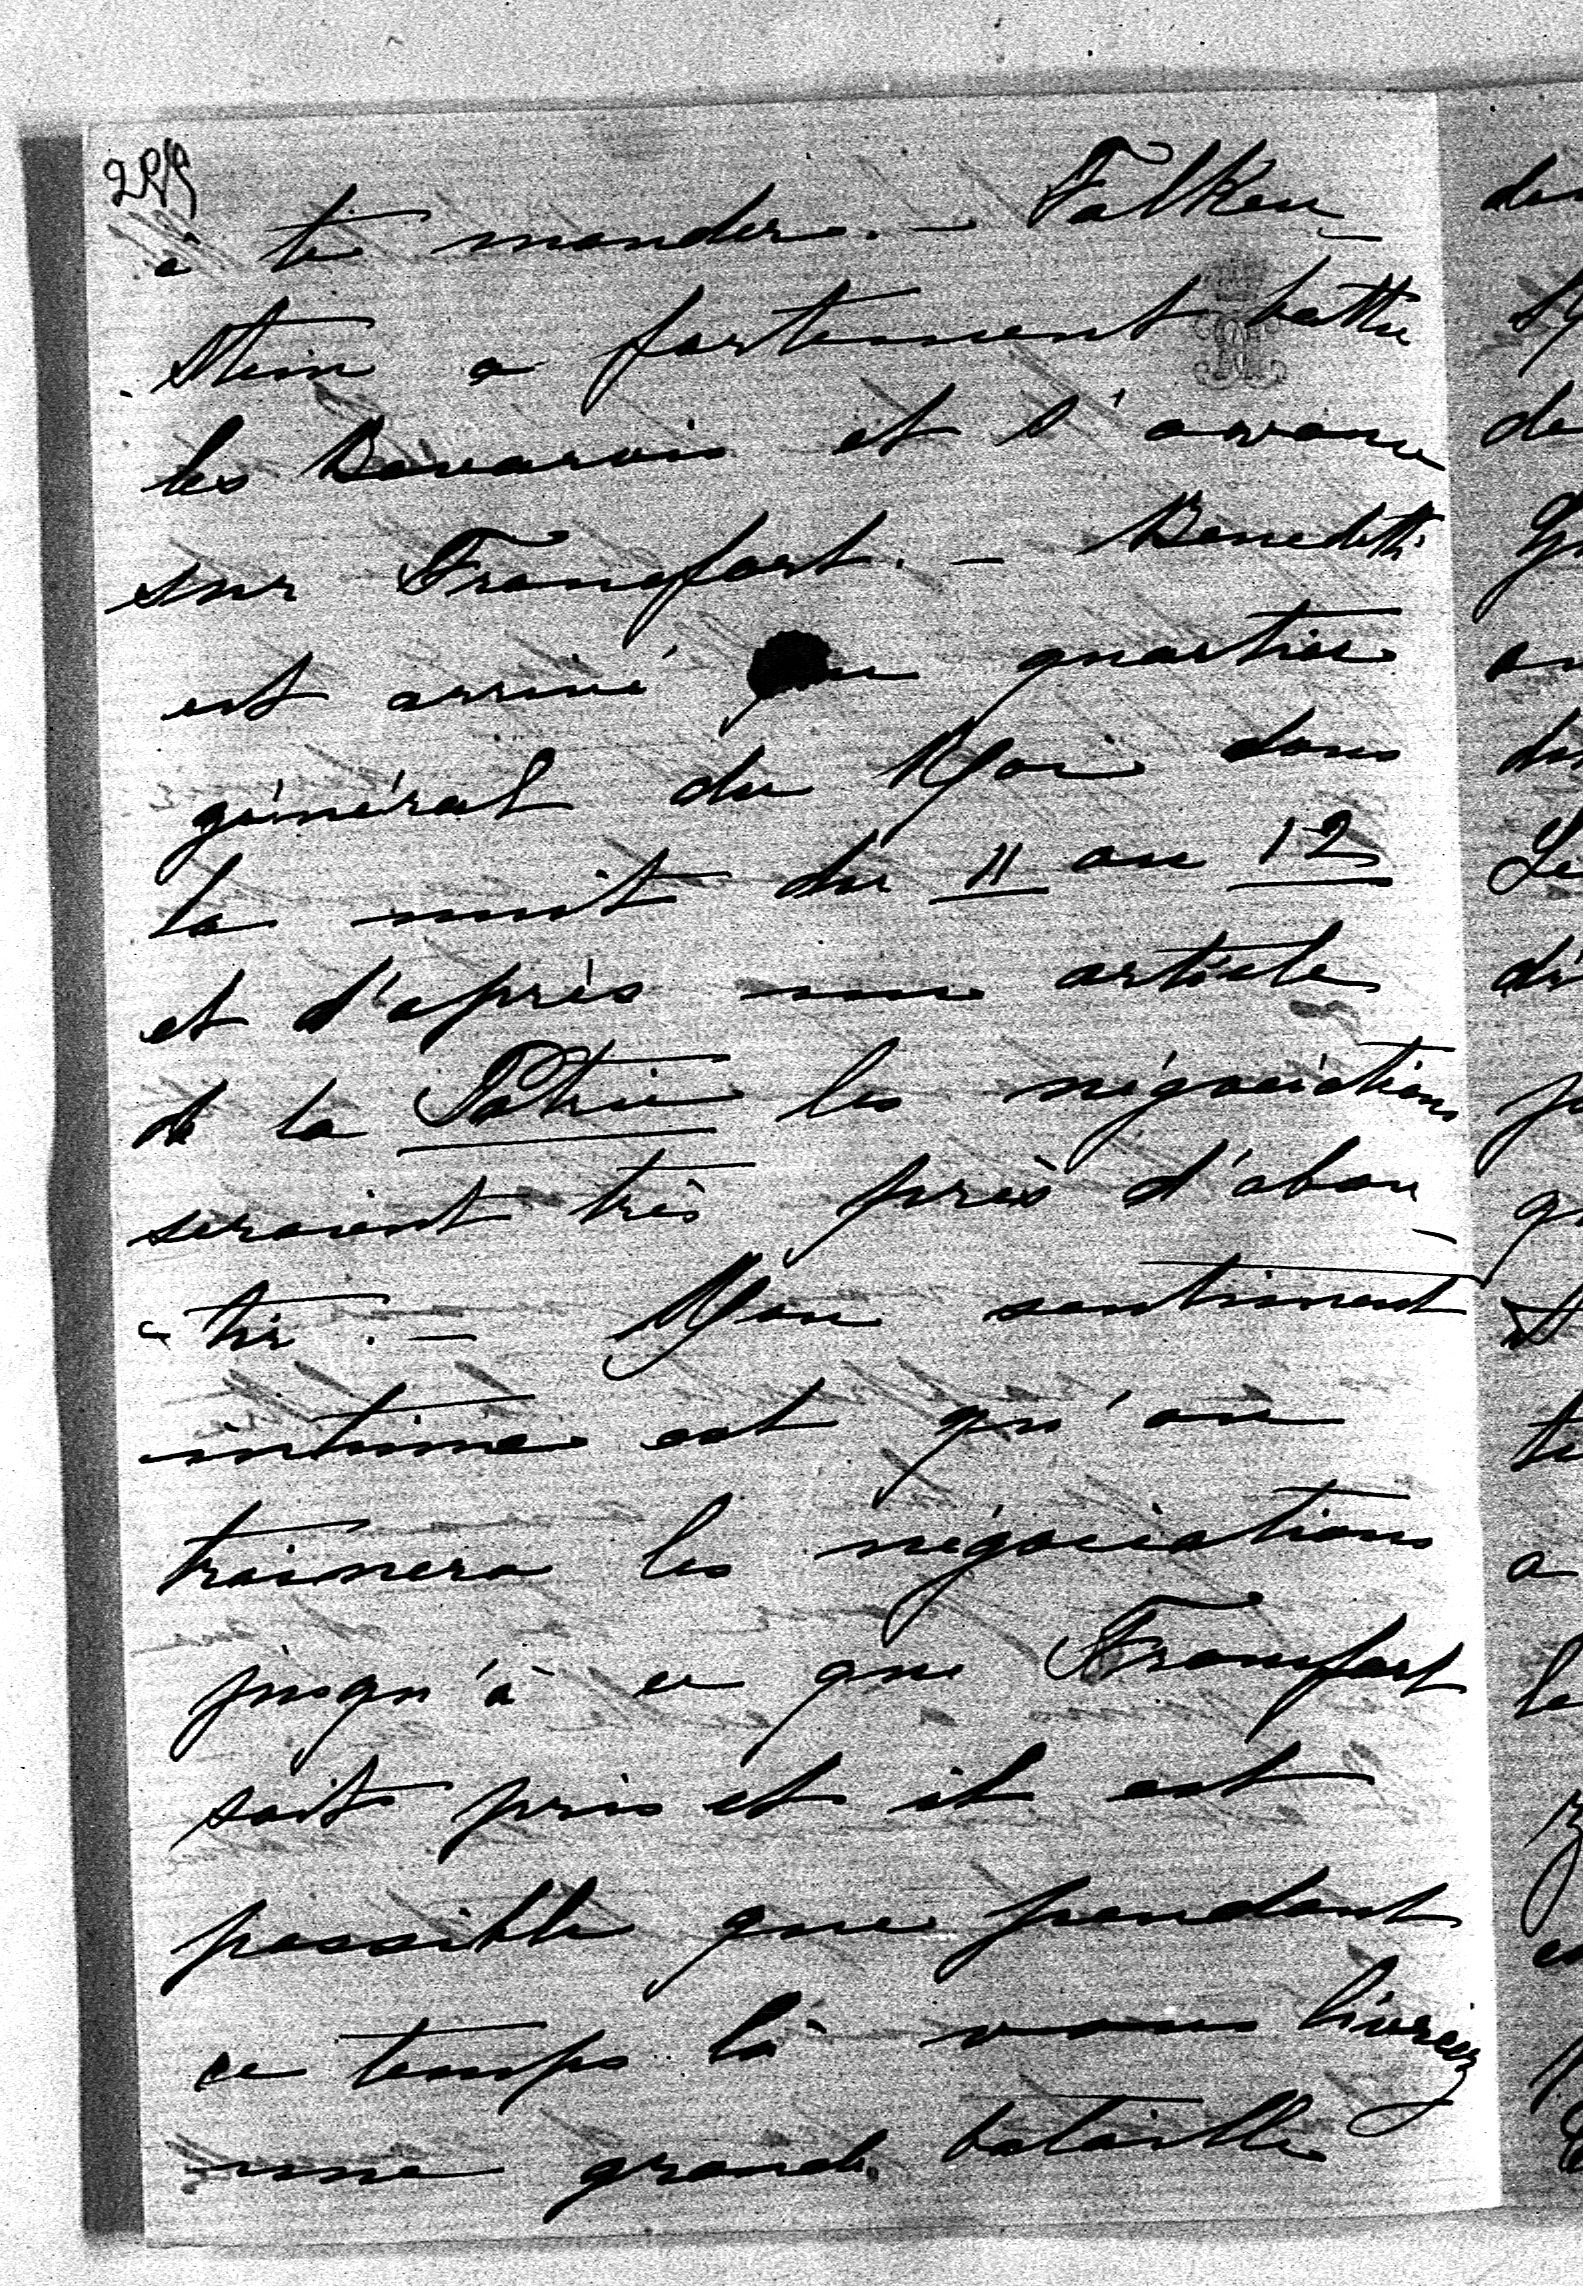 à te mander. – Falken-
stein a fortement battu
les Bavarois et s'avance
sur Francfort. – Benedetti
est arrivé au quartier
général du Roi dans
la nuit du 11 au 12
et d'après une article
de la Patrie les négociations
seraient très près d'abou-
-tir. – Mon sentiment
intime est qu'on
trainera les négociations
jusqu'à ce que Francfort
soit pris et il est
possible que pendant
ce temps là vous livriez
une grande bataille